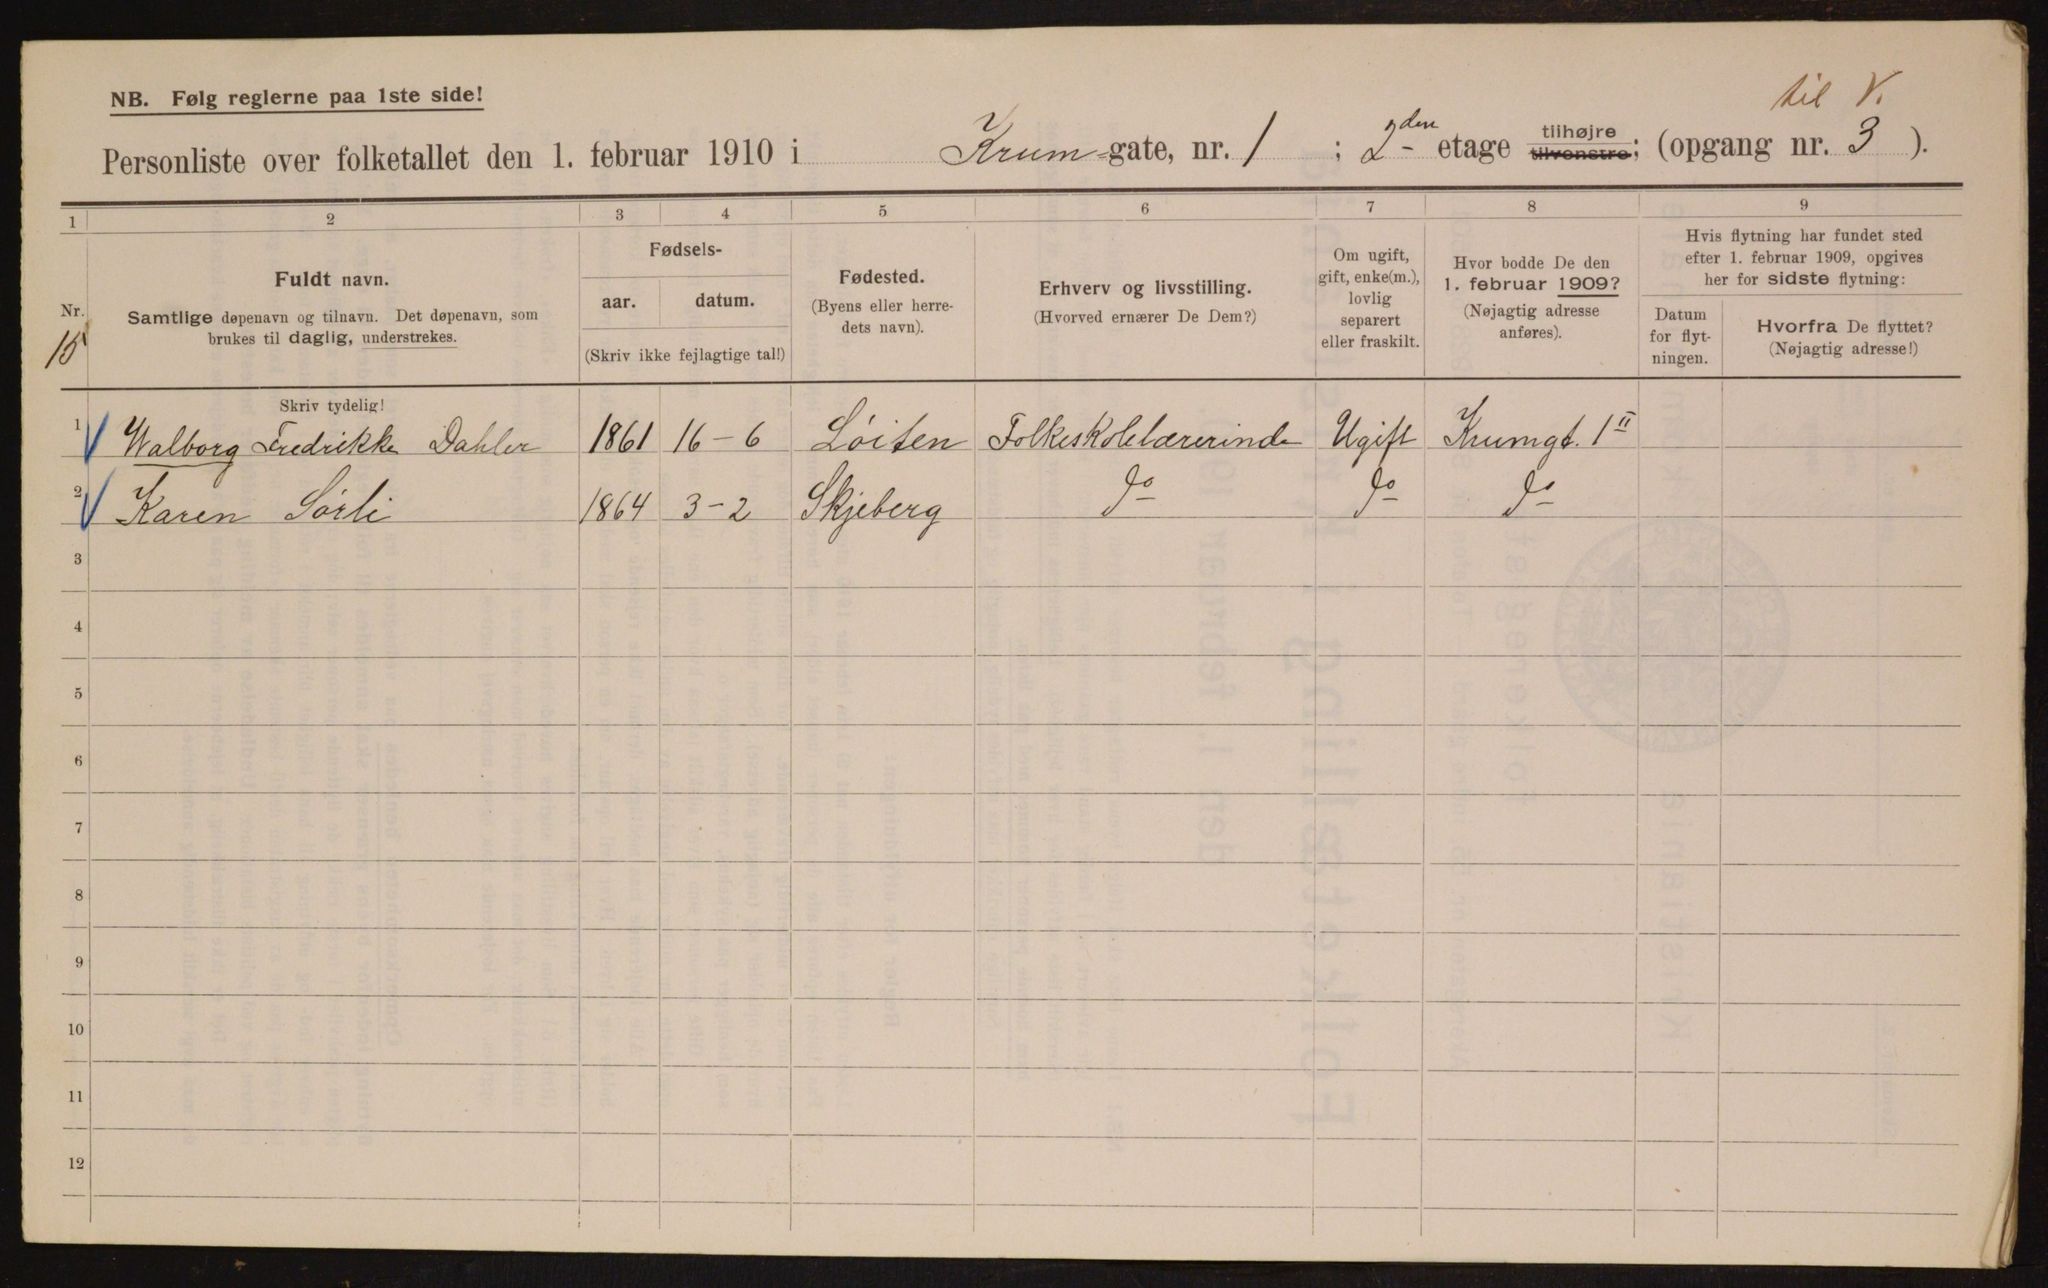 til V.
NB. Følg reglerne paa 1ste side!
Personliste over folketallet den 1. februar 1910 i Krum-gate, nr. 1 ; 2den etage tilhøjre tilvenstre; (opgang nr. 3 ).
1 2 3 4 5 6 7 8 9
Nr.
15
Fuldt navn.
Samtlige døpenavn og tilnavn. Det døpenavn, som
brukes til daglig, understrekes.
Skriv tydelig!
Fødsels-
aar. datum.
(Skriv ikke fejlagtige tal!)
Fødested.
(Byens eller herre-
dets navn).
Erhverv og livsstilling.
(Hvorved ernærer De Dem?)
Om ugift,
gift, enke(m.),
lovlig
separert
eller fraskilt.
Hvor bodde De den
1. februar 1909?
(Nøjagtig adresse
anføres).
Hvis flytning har fundet sted
efter 1. februar 1909, opgives
her for sidste flytning:
Datum
for flyt-
ningen.
Hvorfra De flyttet?
(Nøjagtig adresse!)
1 Walborg Fredrikke Dahler 1861 16-6 Løiten Folkeskolelærerinde Ugift Krumgt. 1 II
2 Karen Sørli 1864 3-2 Skjeberg do do do
3
4
5
6
7
8
9
10
11
12